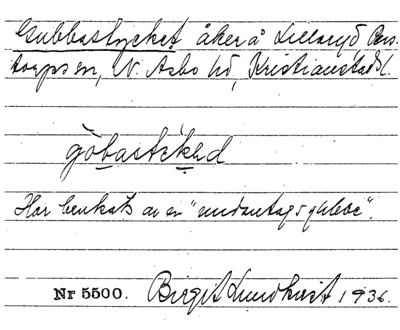 Gubbastycket åker å Lillaryd Pers-
torps sn, N. Åsbo hd, Kristianstads l.
göbastikəd
Har brukats av en "undantagsgubbe".
Nr 5500. Birgit Lundkvist 1936.